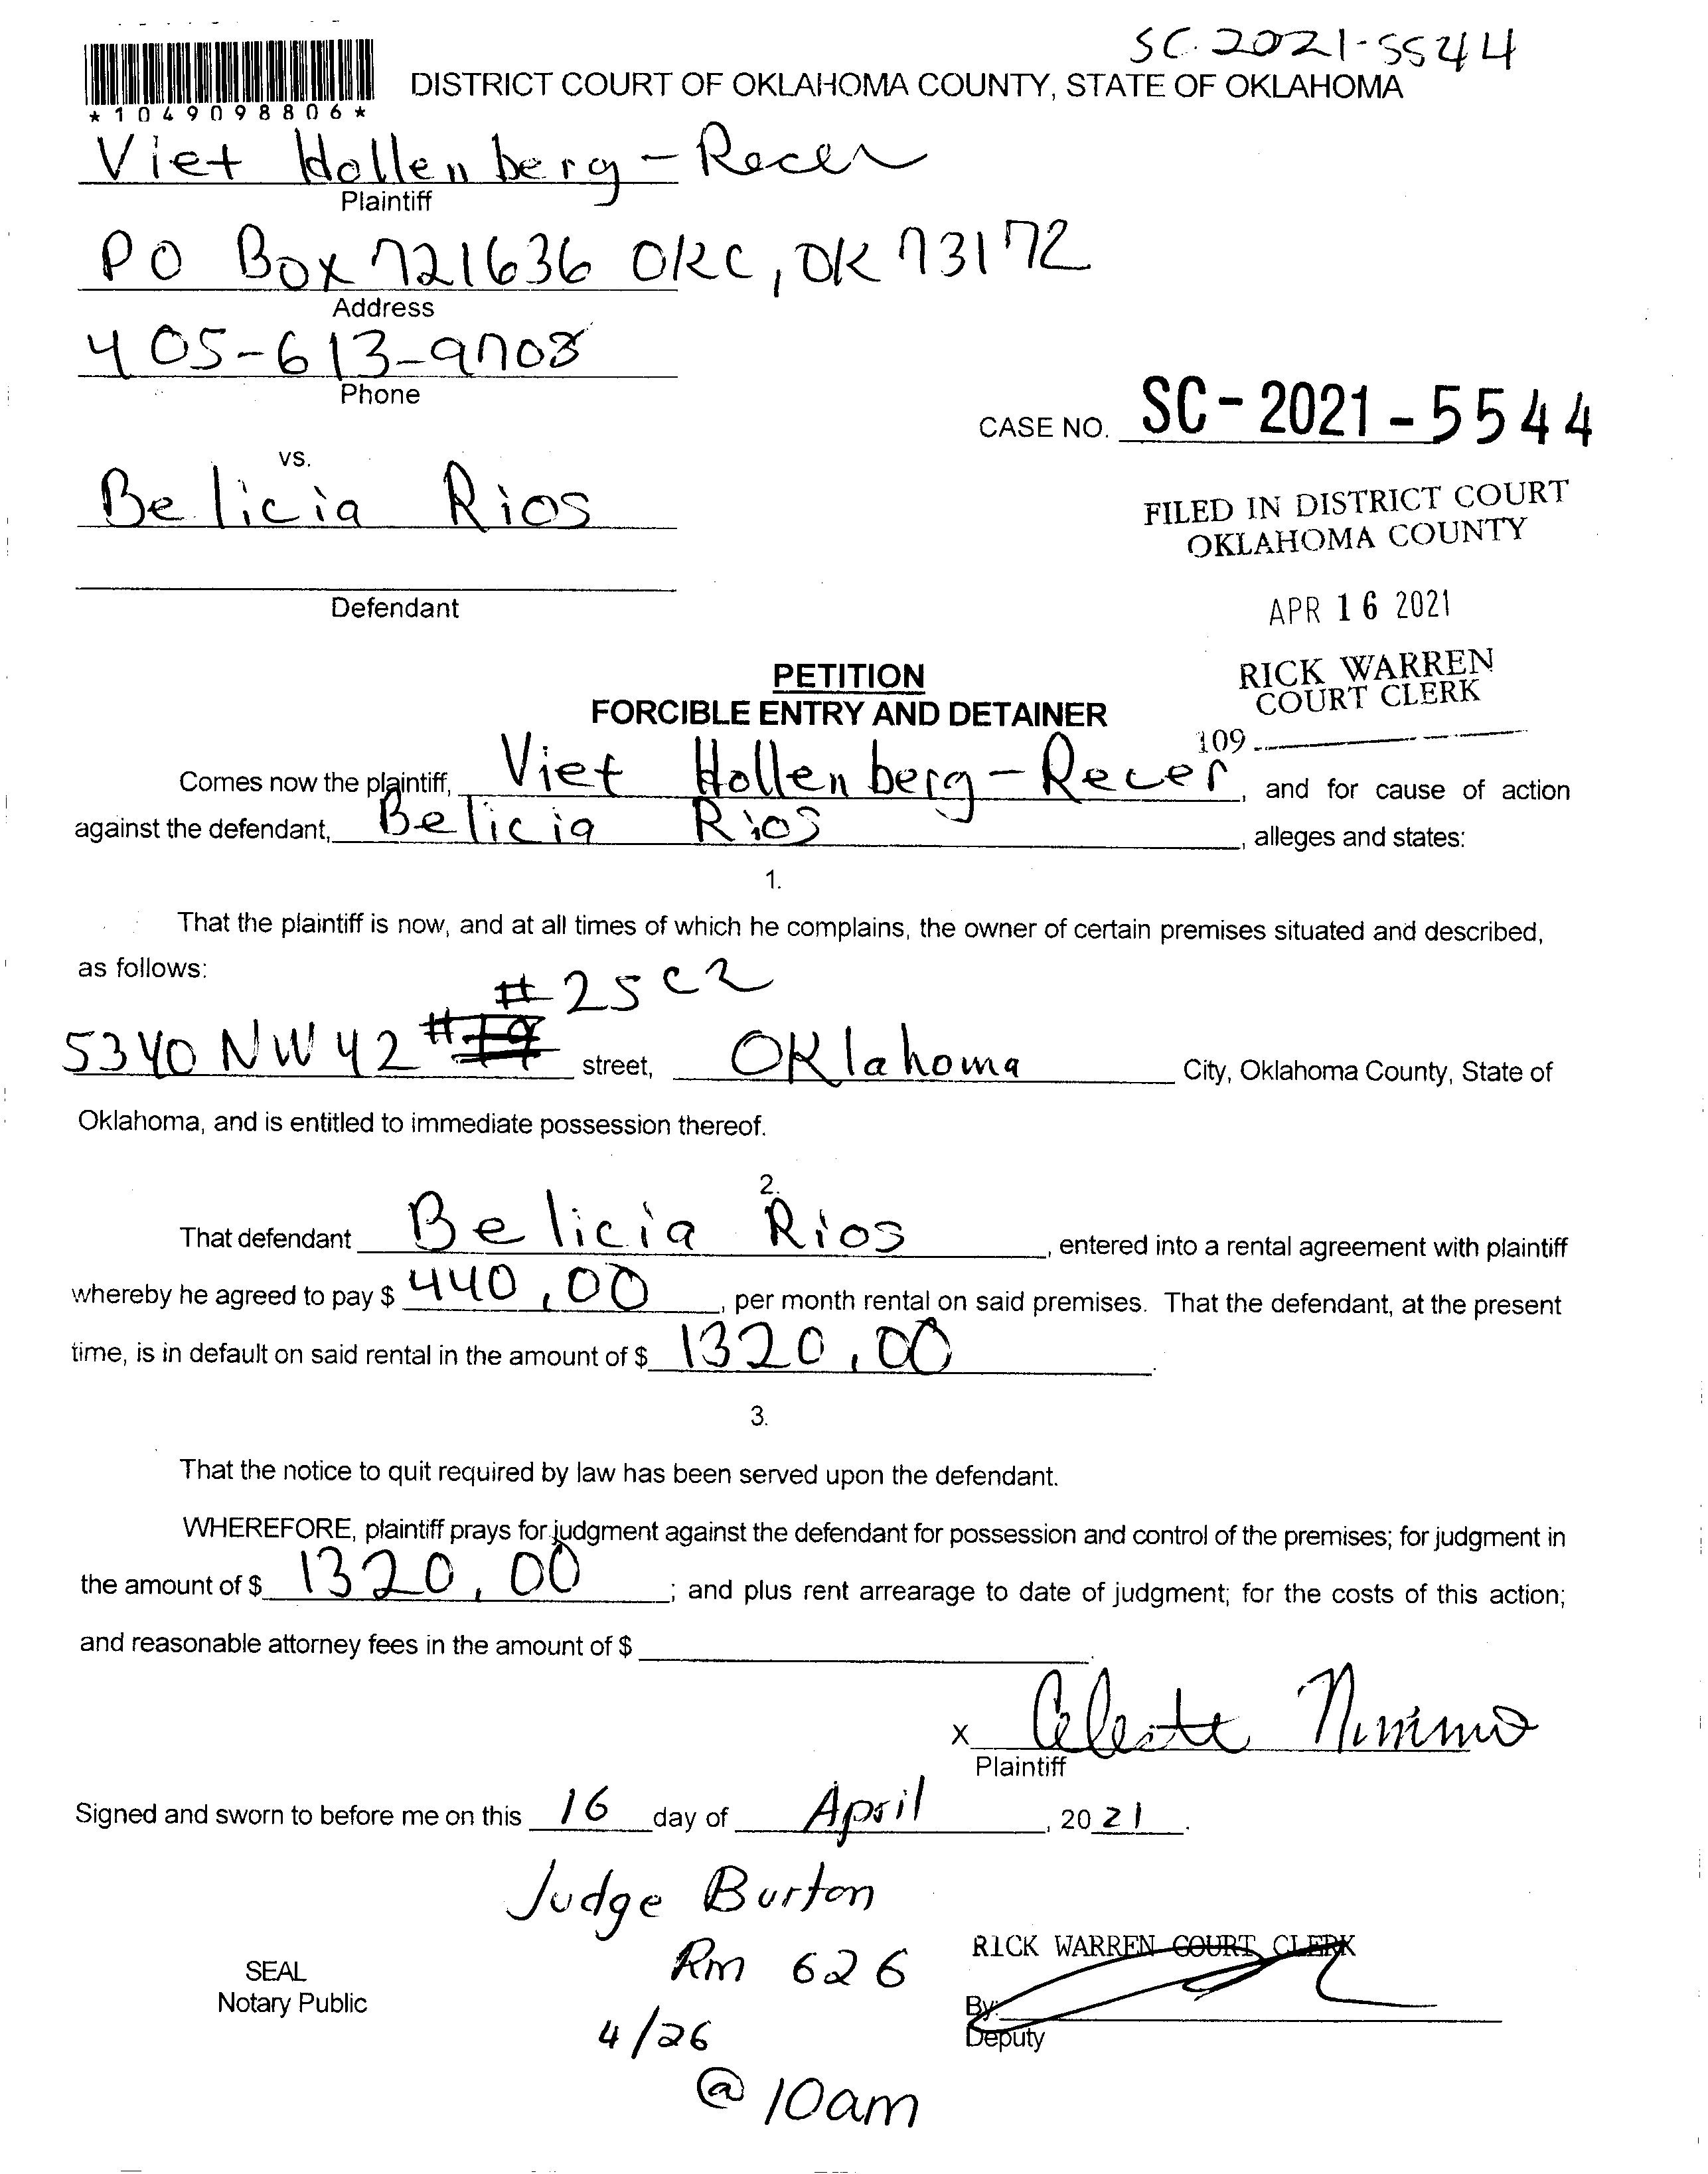 SC-2021-5544
DISTRICT COURT OF OKLAHOMA COUNTY, STATE OF OKLAHOMA
*1049098806*
Viet Hollenberg-Recer
Plaintiff
PO Box 721636 OKC, OK 73172
Address
405-613-9708
Phone
CASE NO. SC-2021-5544
vs.
Belicia Rios
FILED IN DISTRICT COURT
OKLAHOMA COUNTY
Defendant
APR 16 2021
RICK WARREN
COURT CLERK
109
PETITION
FORCIBLE ENTRY AND DETAINER
Comes now the plaintiff, Viet Hollenberg-Recer, and for cause of action
against the defendant, Belicia Rios, alleges and states:
1.
That the plaintiff is now, and at all times of which he complains, the owner of certain premises situated and described,
as follows:
#25C2
5340 NW 42 # street, Oklahoma City, Oklahoma County, State of
Oklahoma, and is entitled to immediate possession thereof.
2.
That defendant Belicia Rios, entered into a rental agreement with plaintiff
whereby he agreed to pay $ 440.00, per month rental on said premises. That the defendant, at the present
time, is in default on said rental in the amount of $ 1320.00.
3.
That the notice to quit required by law has been served upon the defendant.
WHEREFORE, plaintiff prays for judgment against the defendant for possession and control of the premises; for judgment in
the amount of $ 1320.00; and plus rent arrearage to date of judgment; for the costs of this action;
and reasonable attorney fees in the amount of $ .
X Celeste Nimmo
Plaintiff
Signed and sworn to before me on this 16 day of April, 2021.
Judge Burton
Rm 626
4/26
@ 10am
SEAL
Notary Public
RICK WARREN COURT CLERK
By:
Deputy